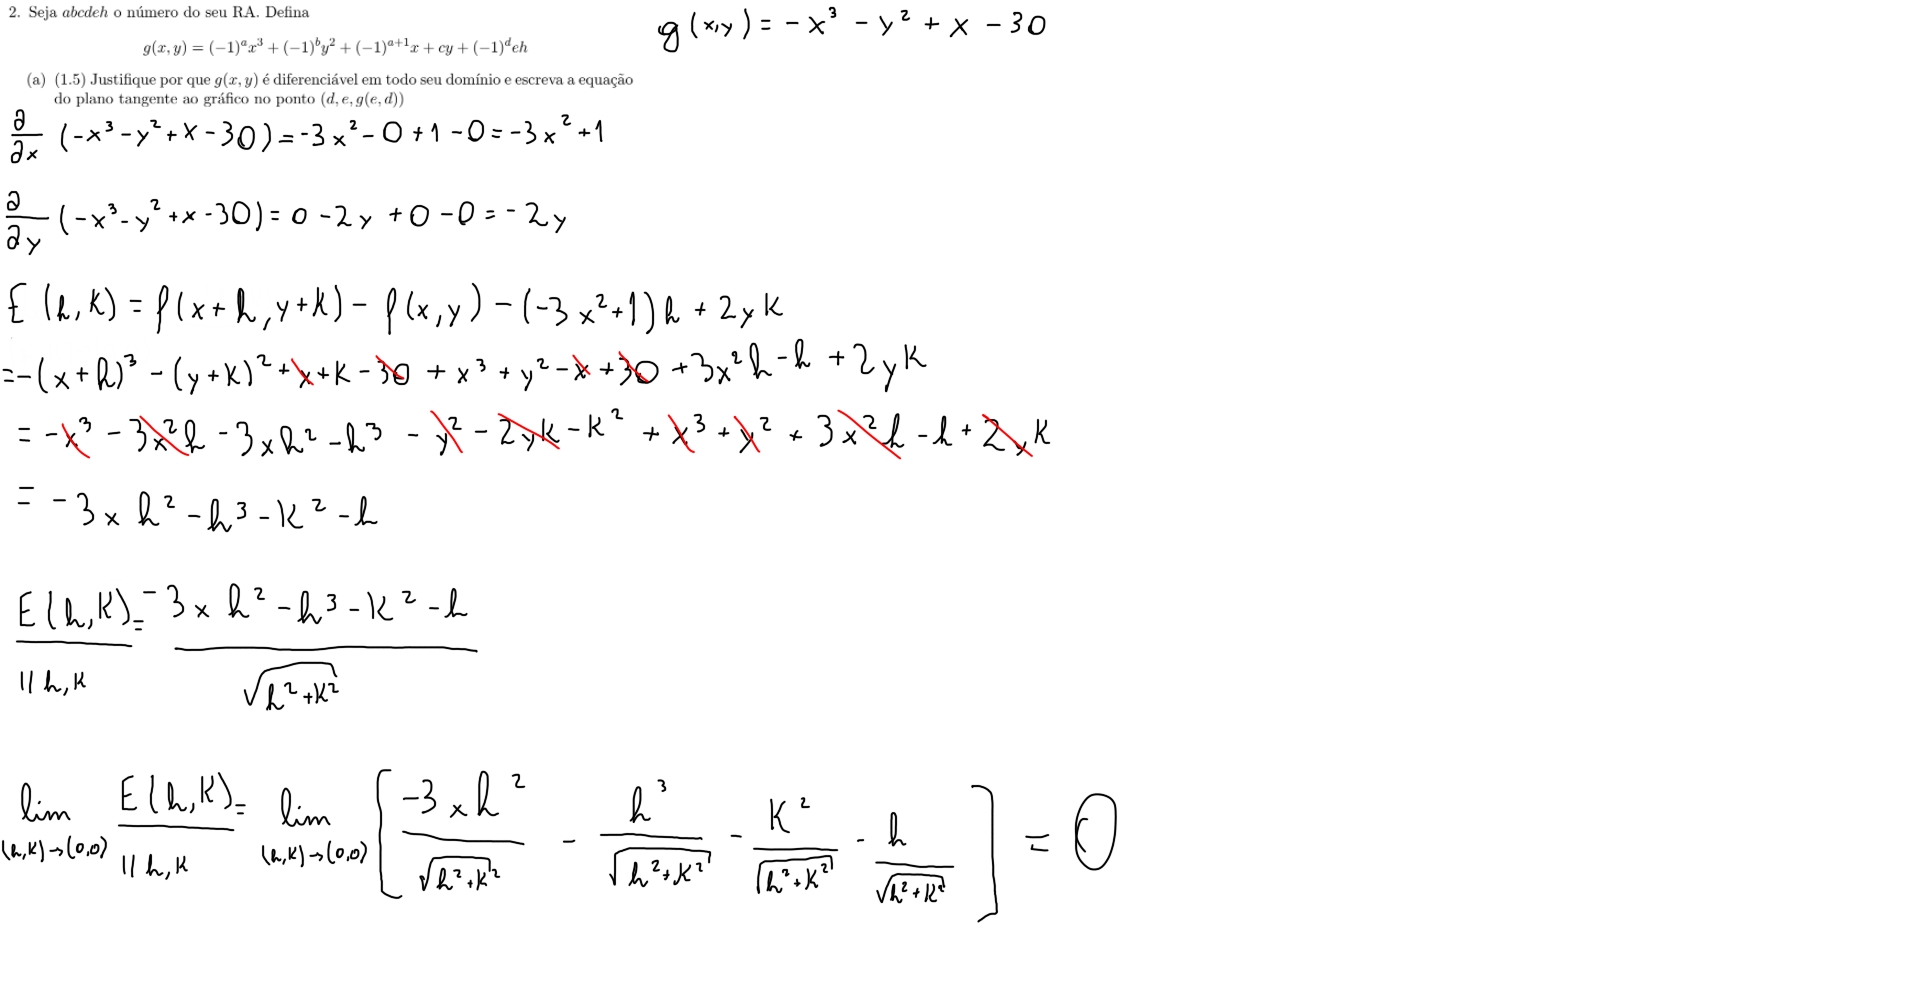 2. Seja abcdeh o número do seu RA. Defina
g(x, y) = (−1)^a x³ + (−1)^b y² + (−1)^{a+1} x + cy + (−1)^d eh
g(x,y) = -x³ - y² + x - 30
(a) (1.5) Justifique por que g(x, y) é diferenciável em todo seu domínio e escreva a equação
do plano tangente ao gráfico no ponto (d, e, g(e, d))
∂/∂x (-x³ - y² + x - 30) = -3x² - 0 + 1 - 0 = -3x² + 1
∂/∂y (-x³ - y² + x - 30) = 0 - 2y + 0 - 0 = -2y
E(h,K) = f(x+h, y+k) - f(x,y) - (-3x²+1)h + 2yK
= -(x+h)³ - (y+K)² + x + K - 30 + x³ + y² - x + 30 + 3x²h - h + 2yK
= -x³ - 3x²h - 3xh² - h³ - y² - 2yK - K² + x³ + y² + 3x²h - h + 2yK
= -3xh² - h³ - K² - h
E(h,K)/||h,K = (-3xh² - h³ - K² - h)/√(h²+K²)
lim (h,K)→(0,0) E(h,K)/||h,K = lim (h,K)→(0,0) [-3xh²/√(h²+K²) - h³/√(h²+K²) - K²/√(h²+K²) - h/√(h²+K²)] = 0